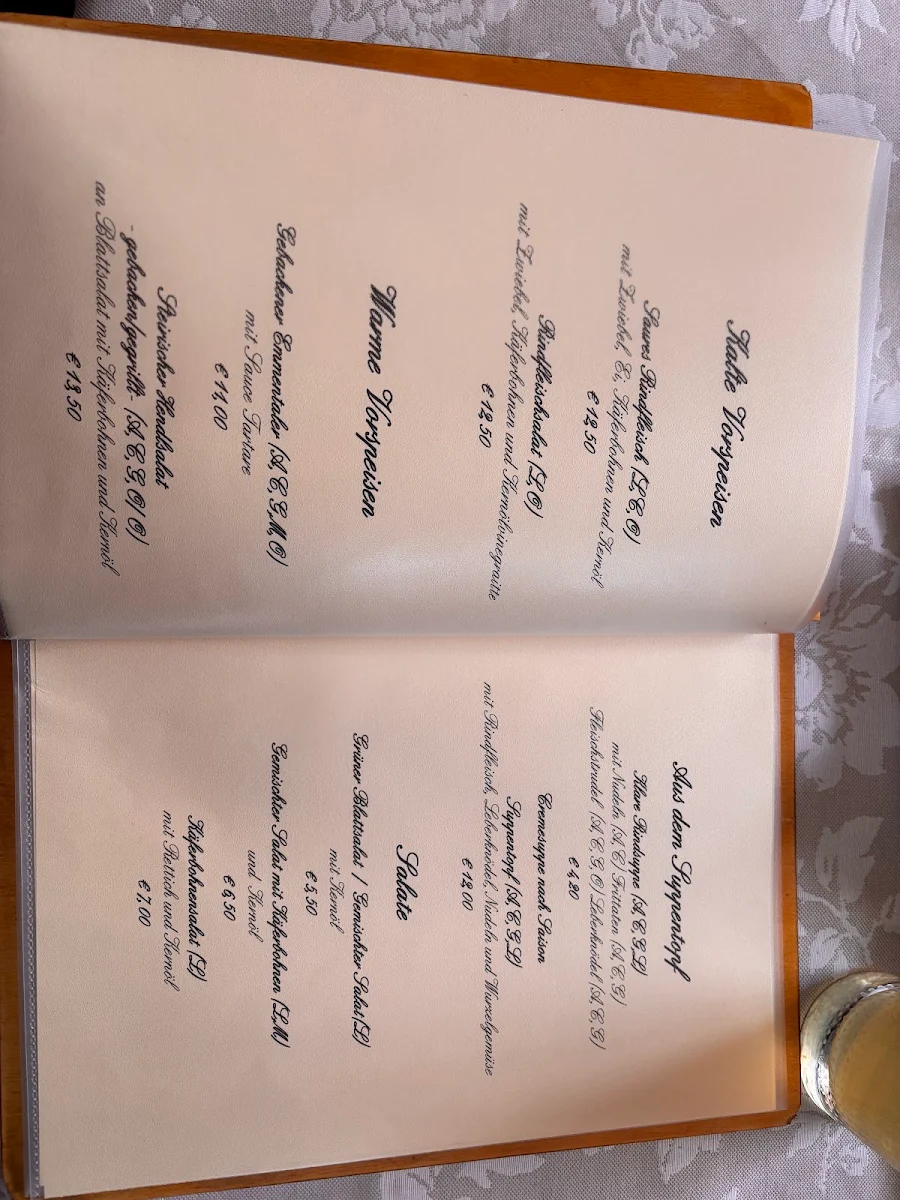 Kalte Vorspeisen
Saures Rindfleisch (L, C, O)
mit Zwiebel, Ei, Käferbohnen und Kernöl
€ 12,50
Rindfleischsalat (L, O)
mit Zwiebel, Käferbohnen und Kernölvinegraitte
€ 12,50
Warme Vorspeisen
Gebackener Emmentaler (A, C, G, M, O)
mit Sauce Tartare
€ 11,00
Steirischer Hendlsalat
- gebacken/gegrillt- (A, C, G, O/ O)
an Blattsalat mit Käferbohnen und Kernöl
€ 13,50
Aus dem Suppentopf
Klare Rindsuppe (A, C, G, L)
mit Nudeln (A, C) Frittaten (A, C, G)
Fleischstrudel (A, C, G, O) Leberknödel (A, C, G)
€ 4,20
Cremesuppe nach Saison
Suppentopf (A, C, G, L)
mit Rindfleisch, Leberknödel, Nudeln und Wurzelgemüse
€ 12,00
Salate
Grüner Blattsalat / Gemischter Salat(L)
mit Kernöl
€ 5,50
Gemischter Salat mit Käferbohnen (L, M)
und Kernöl
€ 6,50
Käferbohnensalat (L)
mit Rettich und Kernöl
€ 7,00